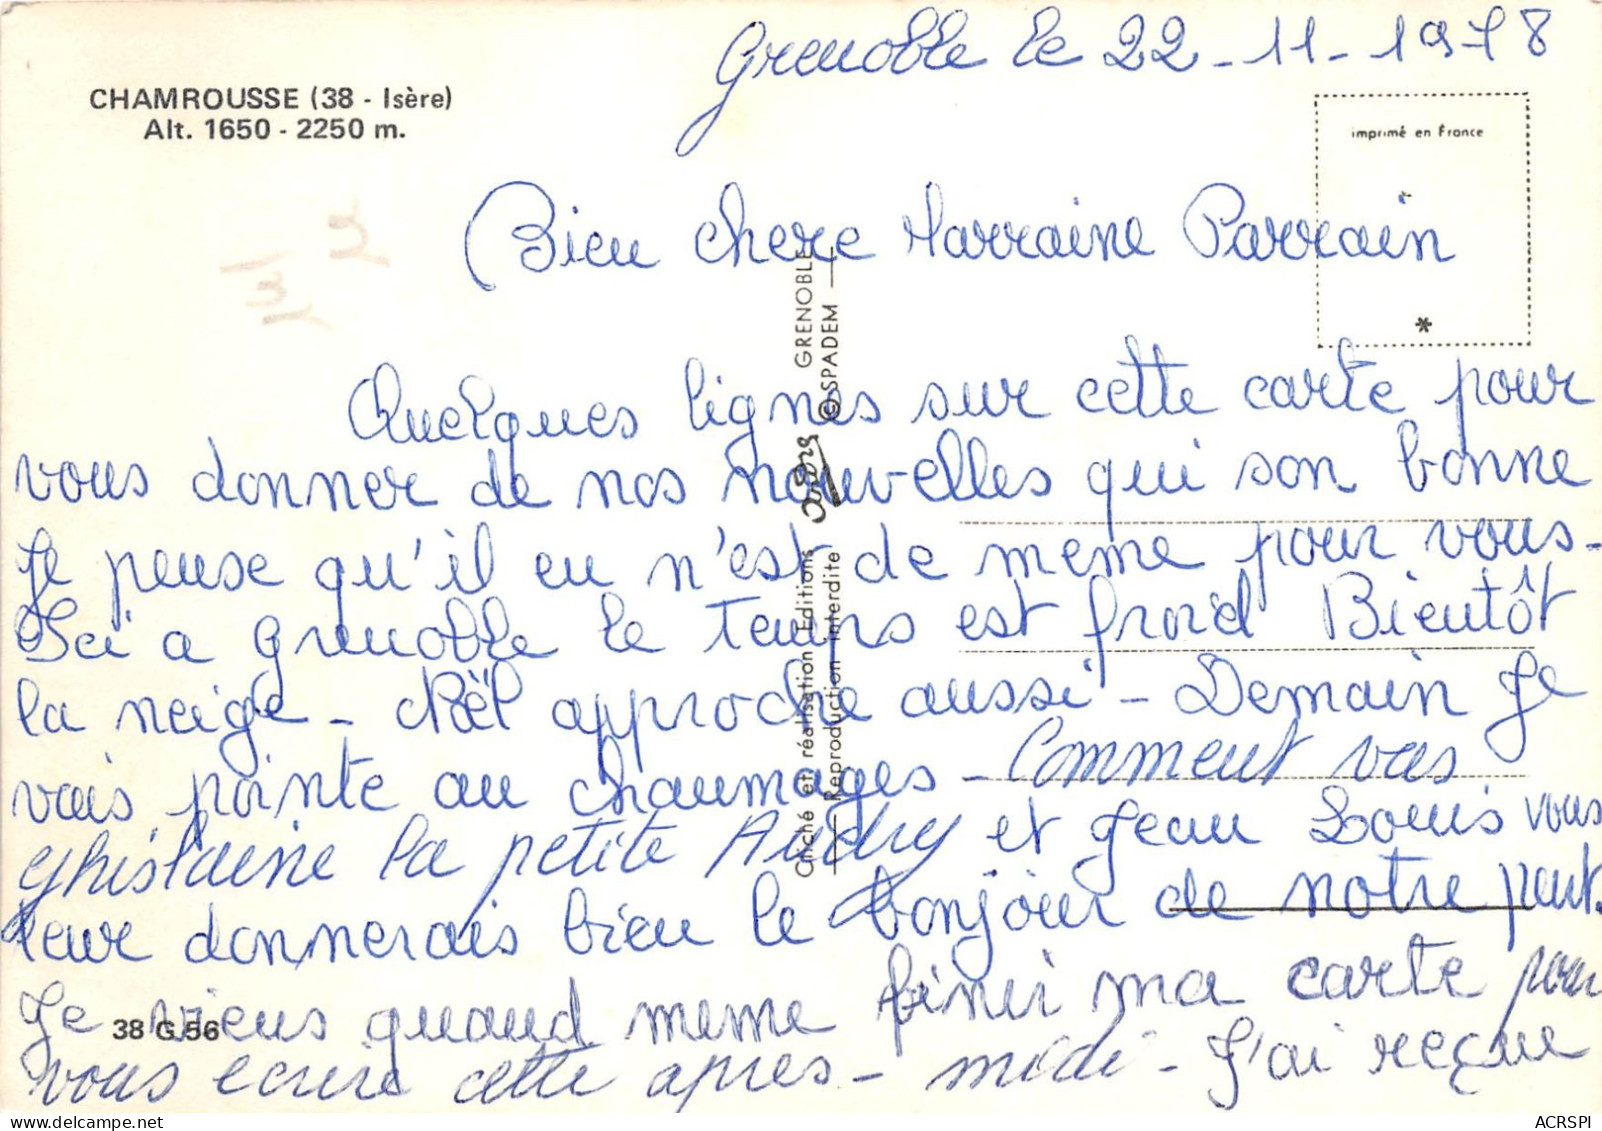 Grenoble le 22-11-1978
CHAMROUSSE (38 - Isère)
Alt. 1650 - 2250 m.
imprimé en France
*
Bien chere Marraine Parrain
Quelques lignes sur cette carte pour
vous donner de nos nouvelles qui son bonne
Je pense qu'il en n'est de meme pour vous-
Ici a Grenoble le temps est froid Bientôt
la neige - Nöel approche aussi - Demain Je
vais pointe au chaumages - Comment vas
Ghislaine la petite Audry et Jean Louis vous
leur donnerais bien le bonjour de notre part.
Je viens quand meme finir ma carte pour
vous ecrire cette apres-midi - J'ai reçue
Cliché et réalisation Editions GRENOBLE
Reproduction interdite © SPADEM
38 G 56
ACRSPI